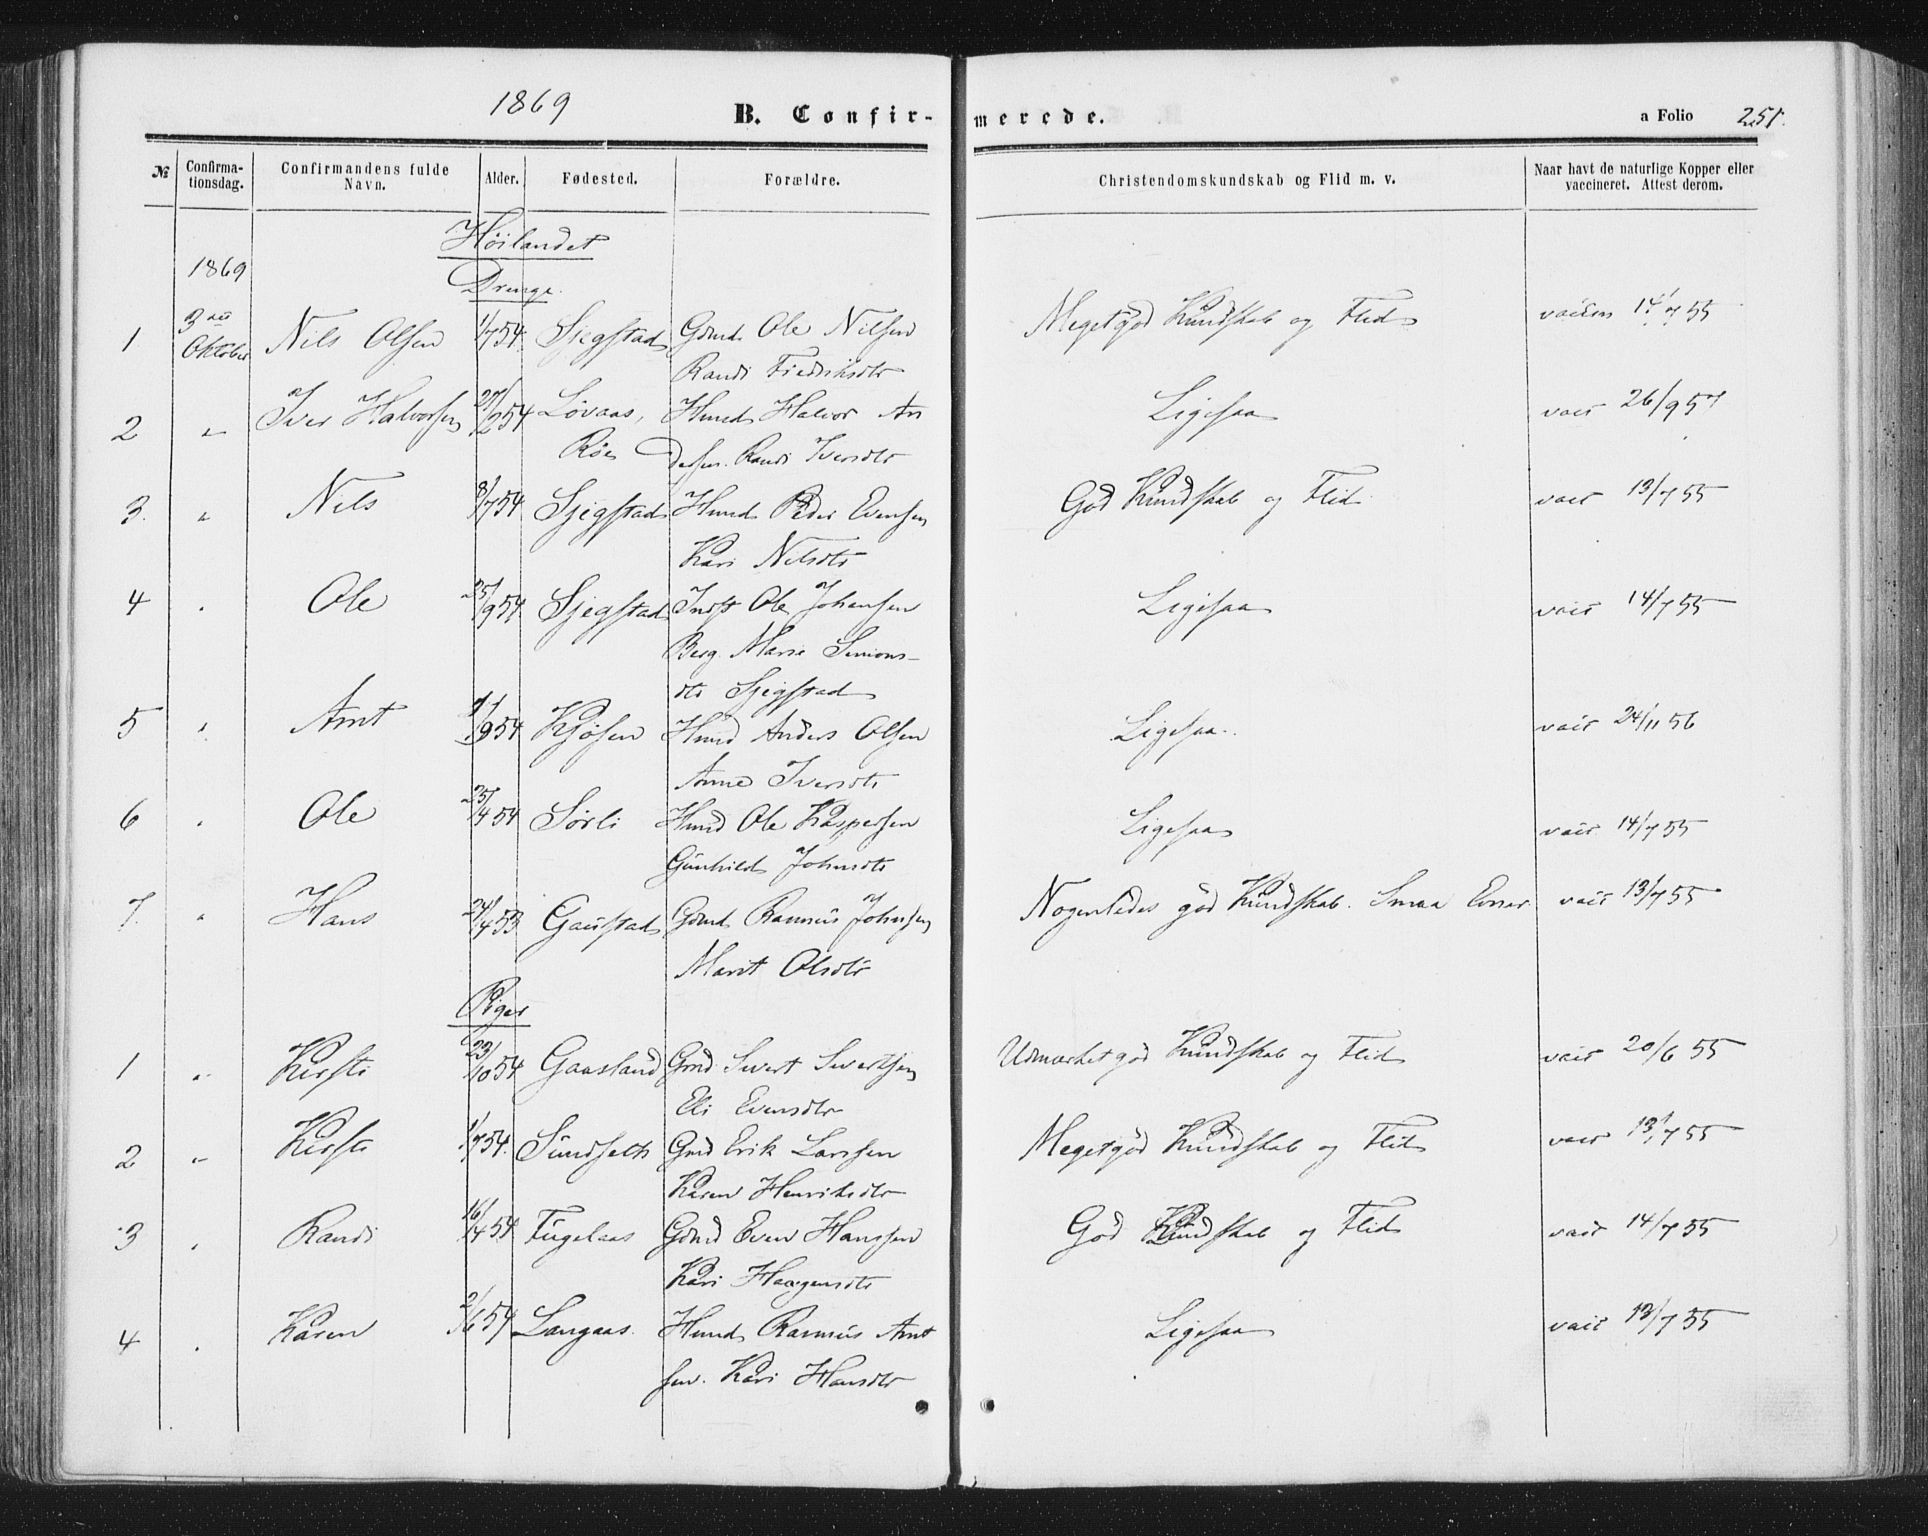 1869
B. Confirmerede.
a Folio 251.
№ Confirmationsdag. Confirmandens fulde Navn. Alder. Fødested. Forældre. Christendomskundskab og Flid m. v. Naar havt de naturlige Kopper eller vaccineret. Attest derom.
Höilandet
1869
Drenge.
1 3die Oktober Nils Olsen 1/7 54 Sjegstad Gmd. Ole Nilsen Meget god Kundskab og Flid vaccin 14/7 55
Randi Fredriksdtr
2 " Iver Halvorsen 27/2 54 Lövaas, Hmd Halvor An Ligesaa vacc 26/9 57
Röe dersen. Randi Iversdtr
3. " Nils 8/7 54 Sjegstad Hmd Peder Evensen God Kundskab og Flid vacc 13/7 55
Kari Nilsdtr
4 " Ole 25/9 54 Sjegstad Indst Ole Johansen Ligesaa vacc 14/7 55
Berg. Marie Simons-
dtr Sjegstad
5 " Arnt 4/9 54 Kjösen Hmd Anders Olsen Ligesaa. vacc 24/11 56
Anne Iversdtr
6 " Ole 25/4 54 Sörli Hmd Ole Kaspersen Ligesaa vacc 14/7 55
Gunhild Johnsdtr
7. " Hans 24/4 53 Gaustad Gmd Rasmus Johnsen Nogenledes god Kundskab. Smaa Evner vacc 13/7 55
Marit Olsdtr
Piger
1 " Kirsti 23/10 54 Gaasland Gmd Sivert Sivertsen Udmærket god Kundskab og Flid vacc 20/6 55
Eli Evensdtr
2 " Kirsti 1/7 54. Sundseth Gmd Erik Larssen Meget god Kundskab og Flid vacc 13/7 55
Karen Henriksdtr
3 " Randi 16/4 54 Fugelaas Gmd Even Hanssen God Kundskab og Flid vacc 14/7 55
Kari Haagensdtr
4 " Karen 2/6 54 Langaas. Hmd Rasmus Arnt Ligesaa vacc 13/7 55
sen. Kari Hansdtr